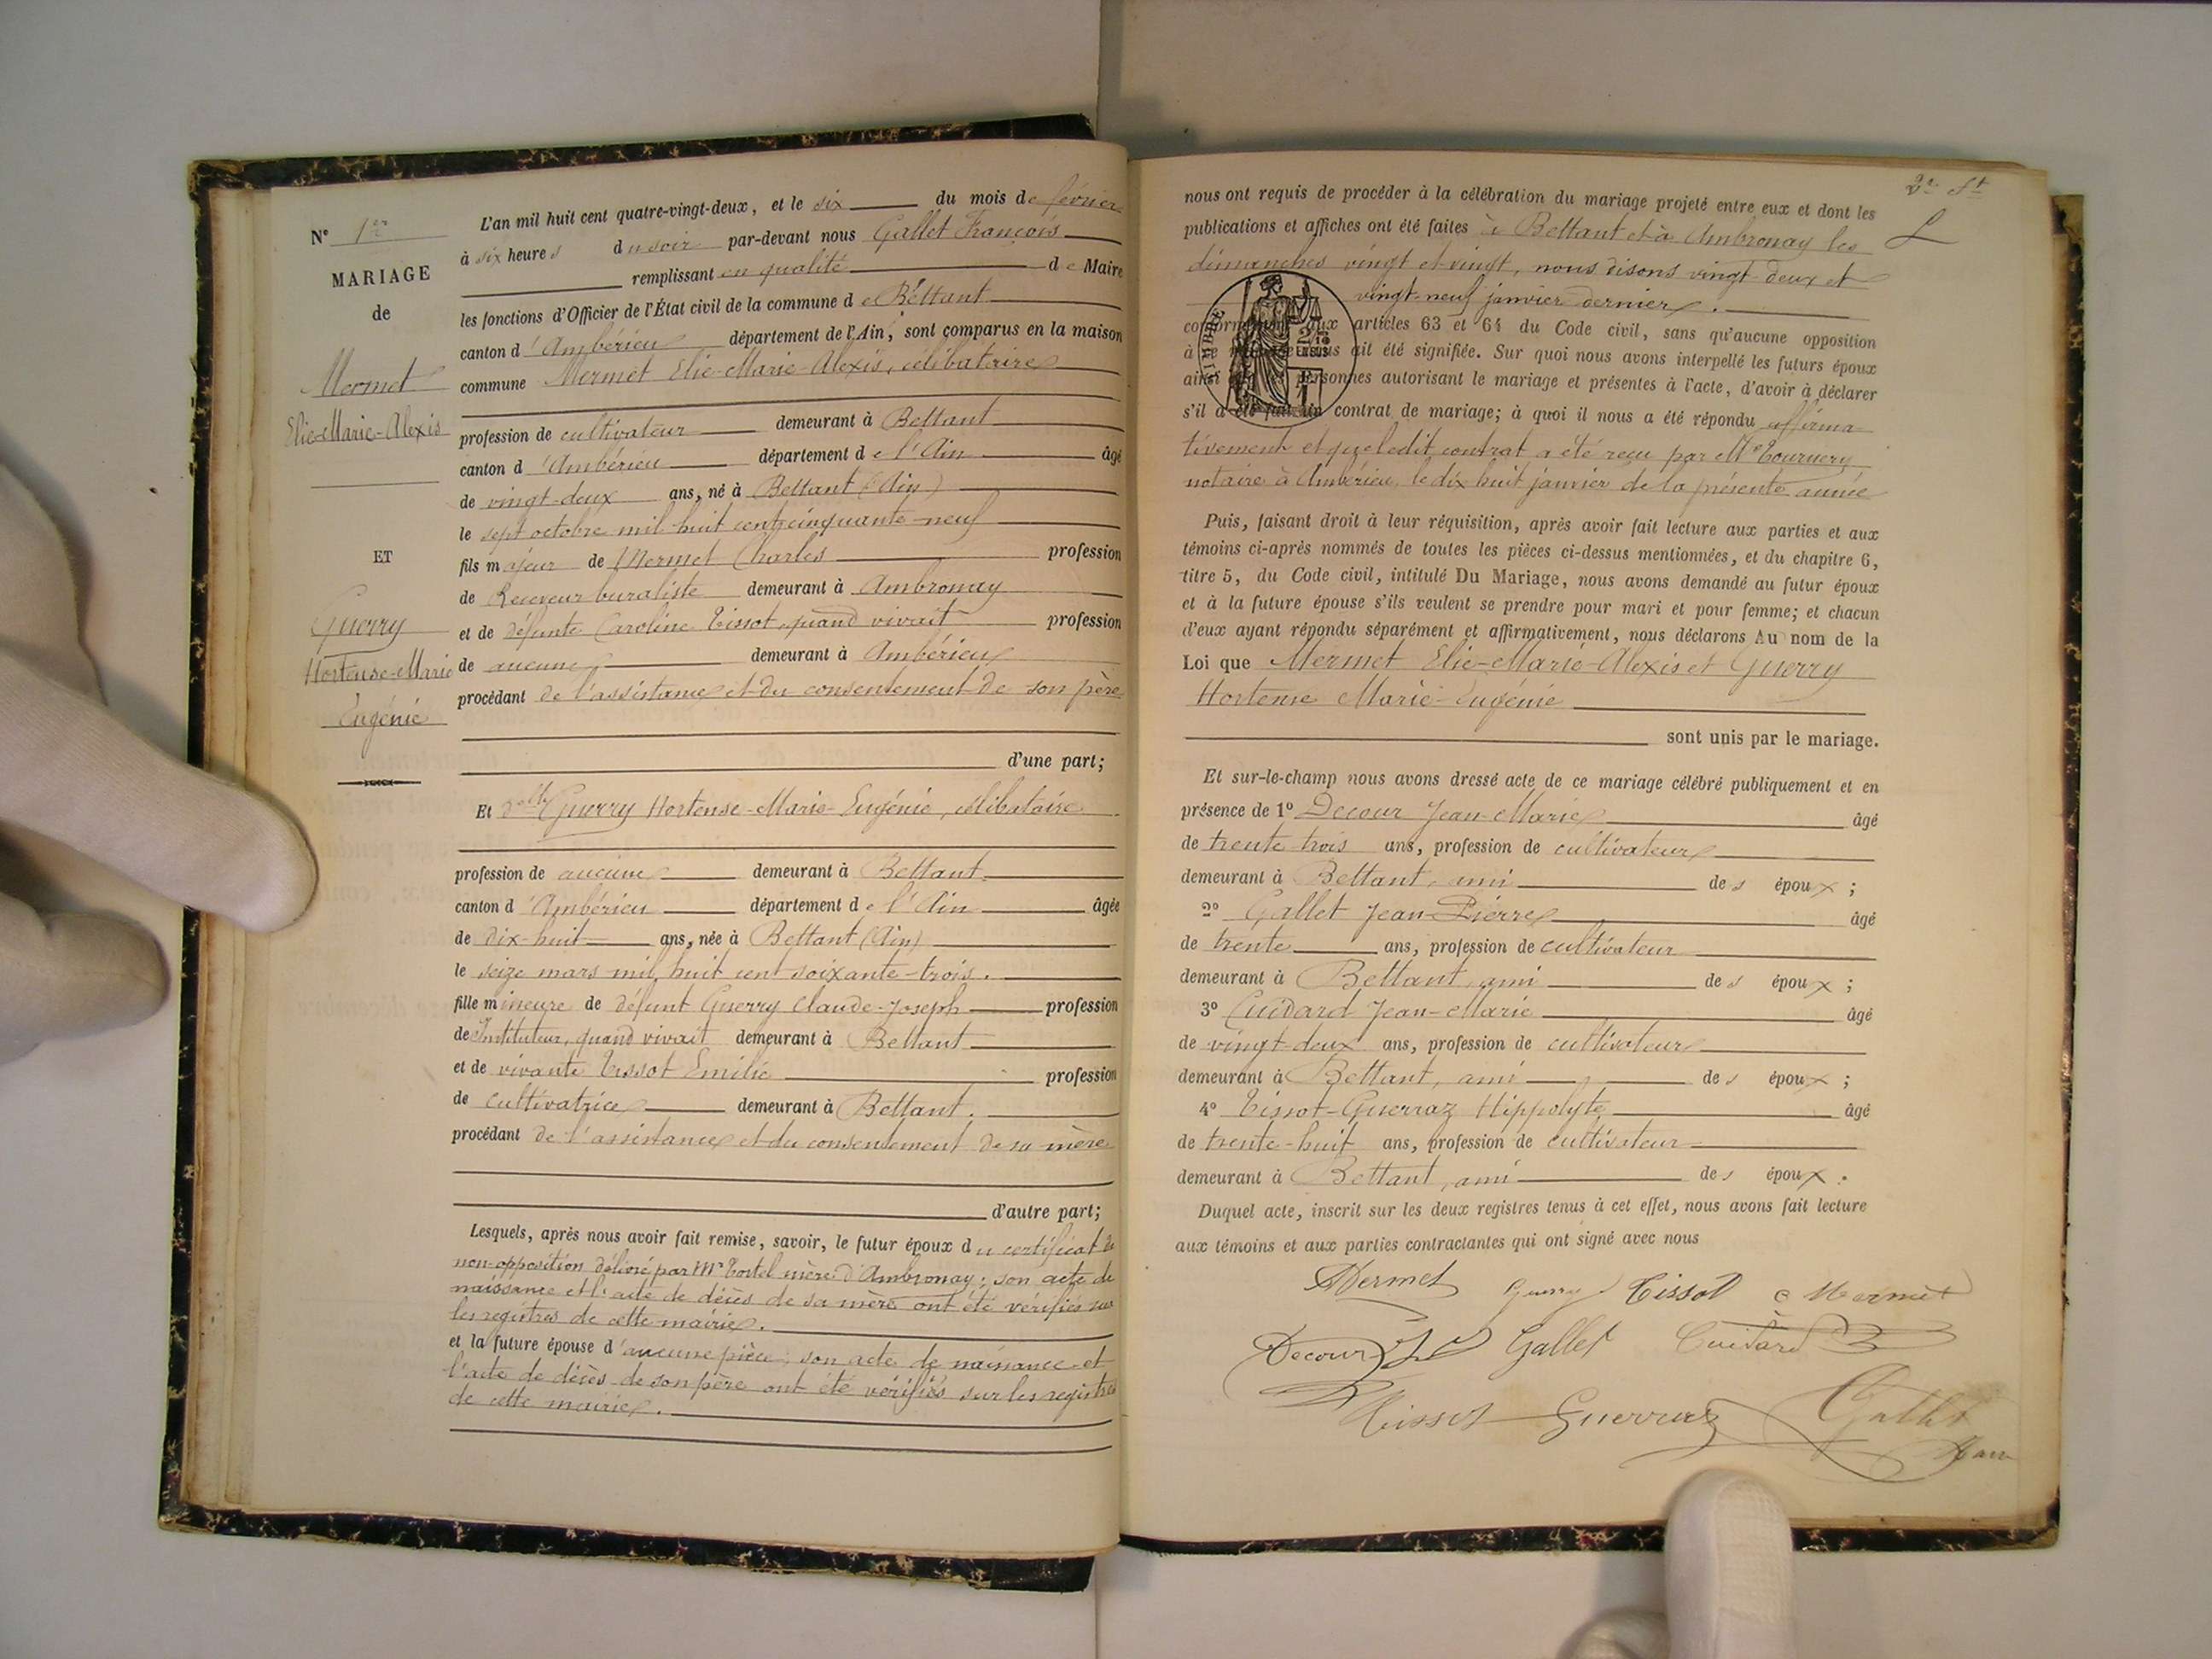 N° 1er
MARIAGE
de
Mermet
Elie-Marie-Alexis
ET
Guerry
Hortense-Marie
Eugénie
L'an mil huit cent quatre-vingt-deux, et le six du mois de février
à six heures du soir par-devant nous Gallet François
remplissant en qualité de Maire
les fonctions d'Officier de l'État civil de la commune de Bettant
canton d'Ambérieu département de l'Ain, sont comparus en la maison
commune Mermet Elie-Marie-Alexis, célibataire
profession de cultivateur demeurant à Bettant
canton d'Ambérieu département de l'Ain âgé
de vingt-deux ans, né à Bettant (Ain)
le sept octobre mil huit cent cinquante-neuf
fils majeur de Mermet Charles profession
de Receveur buraliste demeurant à Ambronay
et de défunte Caroline Tissot, quand vivait profession
de aucune demeurant à Ambérieu
procédant de l'assistance et du consentement de son père
d'une part;
Et delle Guerry Hortense-Marie-Eugénie, célibataire
profession de aucune demeurant à Bettant
canton d'Ambérieu département de l'Ain âgée
de dix-huit ans, née à Bettant (Ain)
le seize mars mil huit cent soixante-trois.
fille mineure de défunt Guerry Claude-Joseph profession
de Instituteur, quand vivait demeurant à Bettant
et de vivante Tissot Emilie profession
de cultivatrice demeurant à Bettant.
procédant de l'assistance et du consentement de sa mère
d'autre part;
Lesquels, après nous avoir fait remise, savoir, le futur époux du certificat de
non-opposition délivré par Mr Tortel mère d'Ambronay; son acte de
naissance et l'acte de décès de sa mère ont été vérifiés sur
les registres de cette mairie.
et la future épouse d'aucune pièce; son acte de naissance et
l'acte de décès de son père ont été vérifiés sur les registres
de cette mairie.
2e ft
nous ont requis de procéder à la célébration du mariage projeté entre eux et dont les
publications et affiches ont été faites à Bettant et à Ambronay les
dimanches vingt et vingt, nous disons vingt-deux et
vingt-neuf janvier dernier.
conformément aux articles 63 et 64 du Code civil, sans qu'aucune opposition
à ce mariage nous ait été signifiée. Sur quoi nous avons interpellé les futurs époux
ainsi que les personnes autorisant le mariage et présentes à l'acte, d'avoir à déclarer
s'il a été fait un contrat de mariage; à quoi il nous a été répondu affirma-
tivement et que ledit contrat a été reçu par Me Tournery
notaire à Ambérieu, le dix huit janvier de la présente année
TIMBRE
Puis, faisant droit à leur réquisition, après avoir fait lecture aux parties et aux
témoins ci-après nommés de toutes les pièces ci-dessus mentionnées, et du chapitre 6,
titre 5, du Code civil, intitulé Du Mariage, nous avons demandé au futur époux
et à la future épouse s'ils veulent se prendre pour mari et pour femme; et chacun
d'eux ayant répondu séparément et affirmativement, nous déclarons Au nom de la
Loi que Mermet Elie-Marie-Alexis et Guerry
Hortense Marie-Eugénie
sont unis par le mariage.
Et sur-le-champ nous avons dressé acte de ce mariage célébré publiquement et en
présence de 1° Decour Jean-Marie âgé
de trente trois ans, profession de cultivateur
demeurant à Bettant, ami des époux;
2° Gallet Jean-Pierre âgé
de trente ans, profession de cultivateur
demeurant à Bettant, ami des époux;
3° Cuidard Jean-Marie âgé
de vingt-deux ans, profession de cultivateur
demeurant à Bettant, ami des époux;
4° Tissot-Guerraz Hippolyte âgé
de trente-huit ans, profession de cultivateur
demeurant à Bettant, ami des époux.
Duquel acte, inscrit sur les deux registres tenus à cet effet, nous avons fait lecture
aux témoins et aux parties contractantes qui ont signé avec nous
Mermet Guerry Tissot C Mermet
Decour Gallet Cuidard
Tissot-Guerraz Gallet
Maire